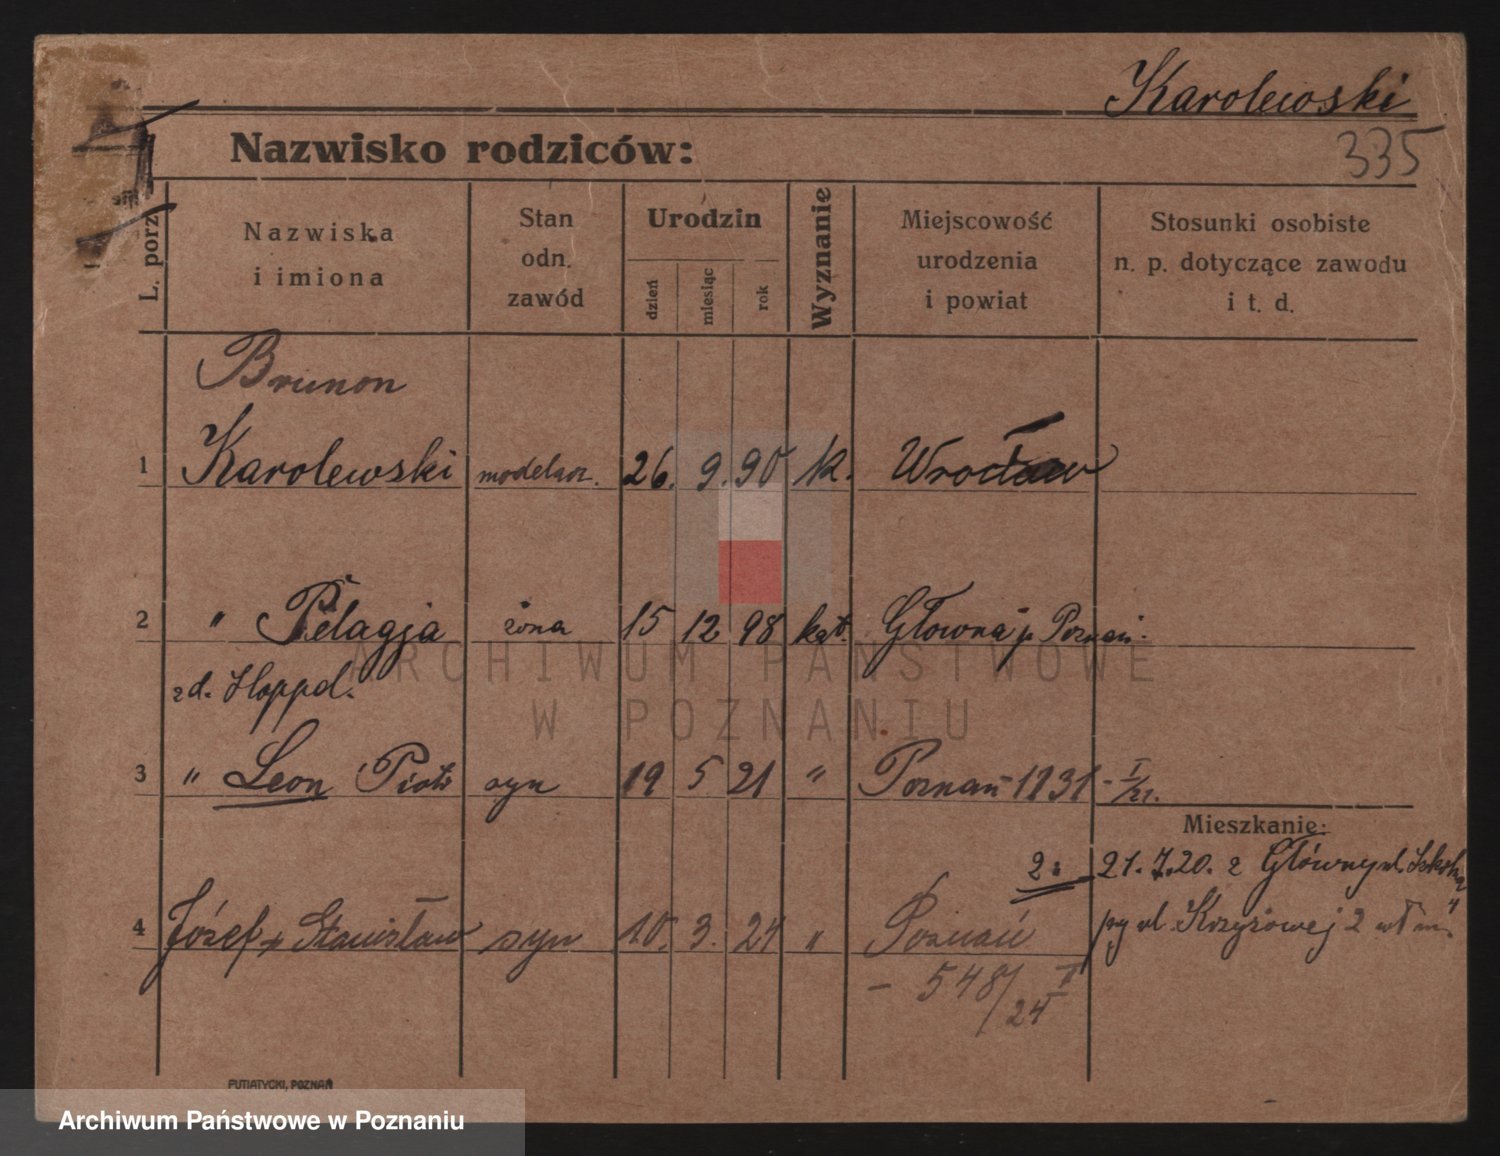 Karolewski
335
Nazwisko rodziców:
L. porz.
Nazwiska
i imiona
Stan
odn.
zawód
Urodzin
dzień
miesiąc
rok
Wyznanie
Miejscowość
urodzenia
i powiat
Stosunki osobiste
n. p. dotyczące zawodu
i t. d.
Brunon
1 Karolewski modelarz. 26. 9. 90 k. Wrocław
2 " Pelagja żona 15 12 98 kat. Główna p. Poznań.
zd.
3 " Leon Piotr syn 19 5 21 " Poznań 1131 - I/21.
Mieszkanie:
21. 7. 20. z Główny ul.
4 Józef Stanisław syn 10. 3. 24 " Poznań
ul. Krzyżowej 2
- 548/24 II
PUTIATYCKI, POZNAŃ
ARCHIWUM PAŃSTWOWE
W POZNANIU
Archiwum Państwowe w Poznaniu